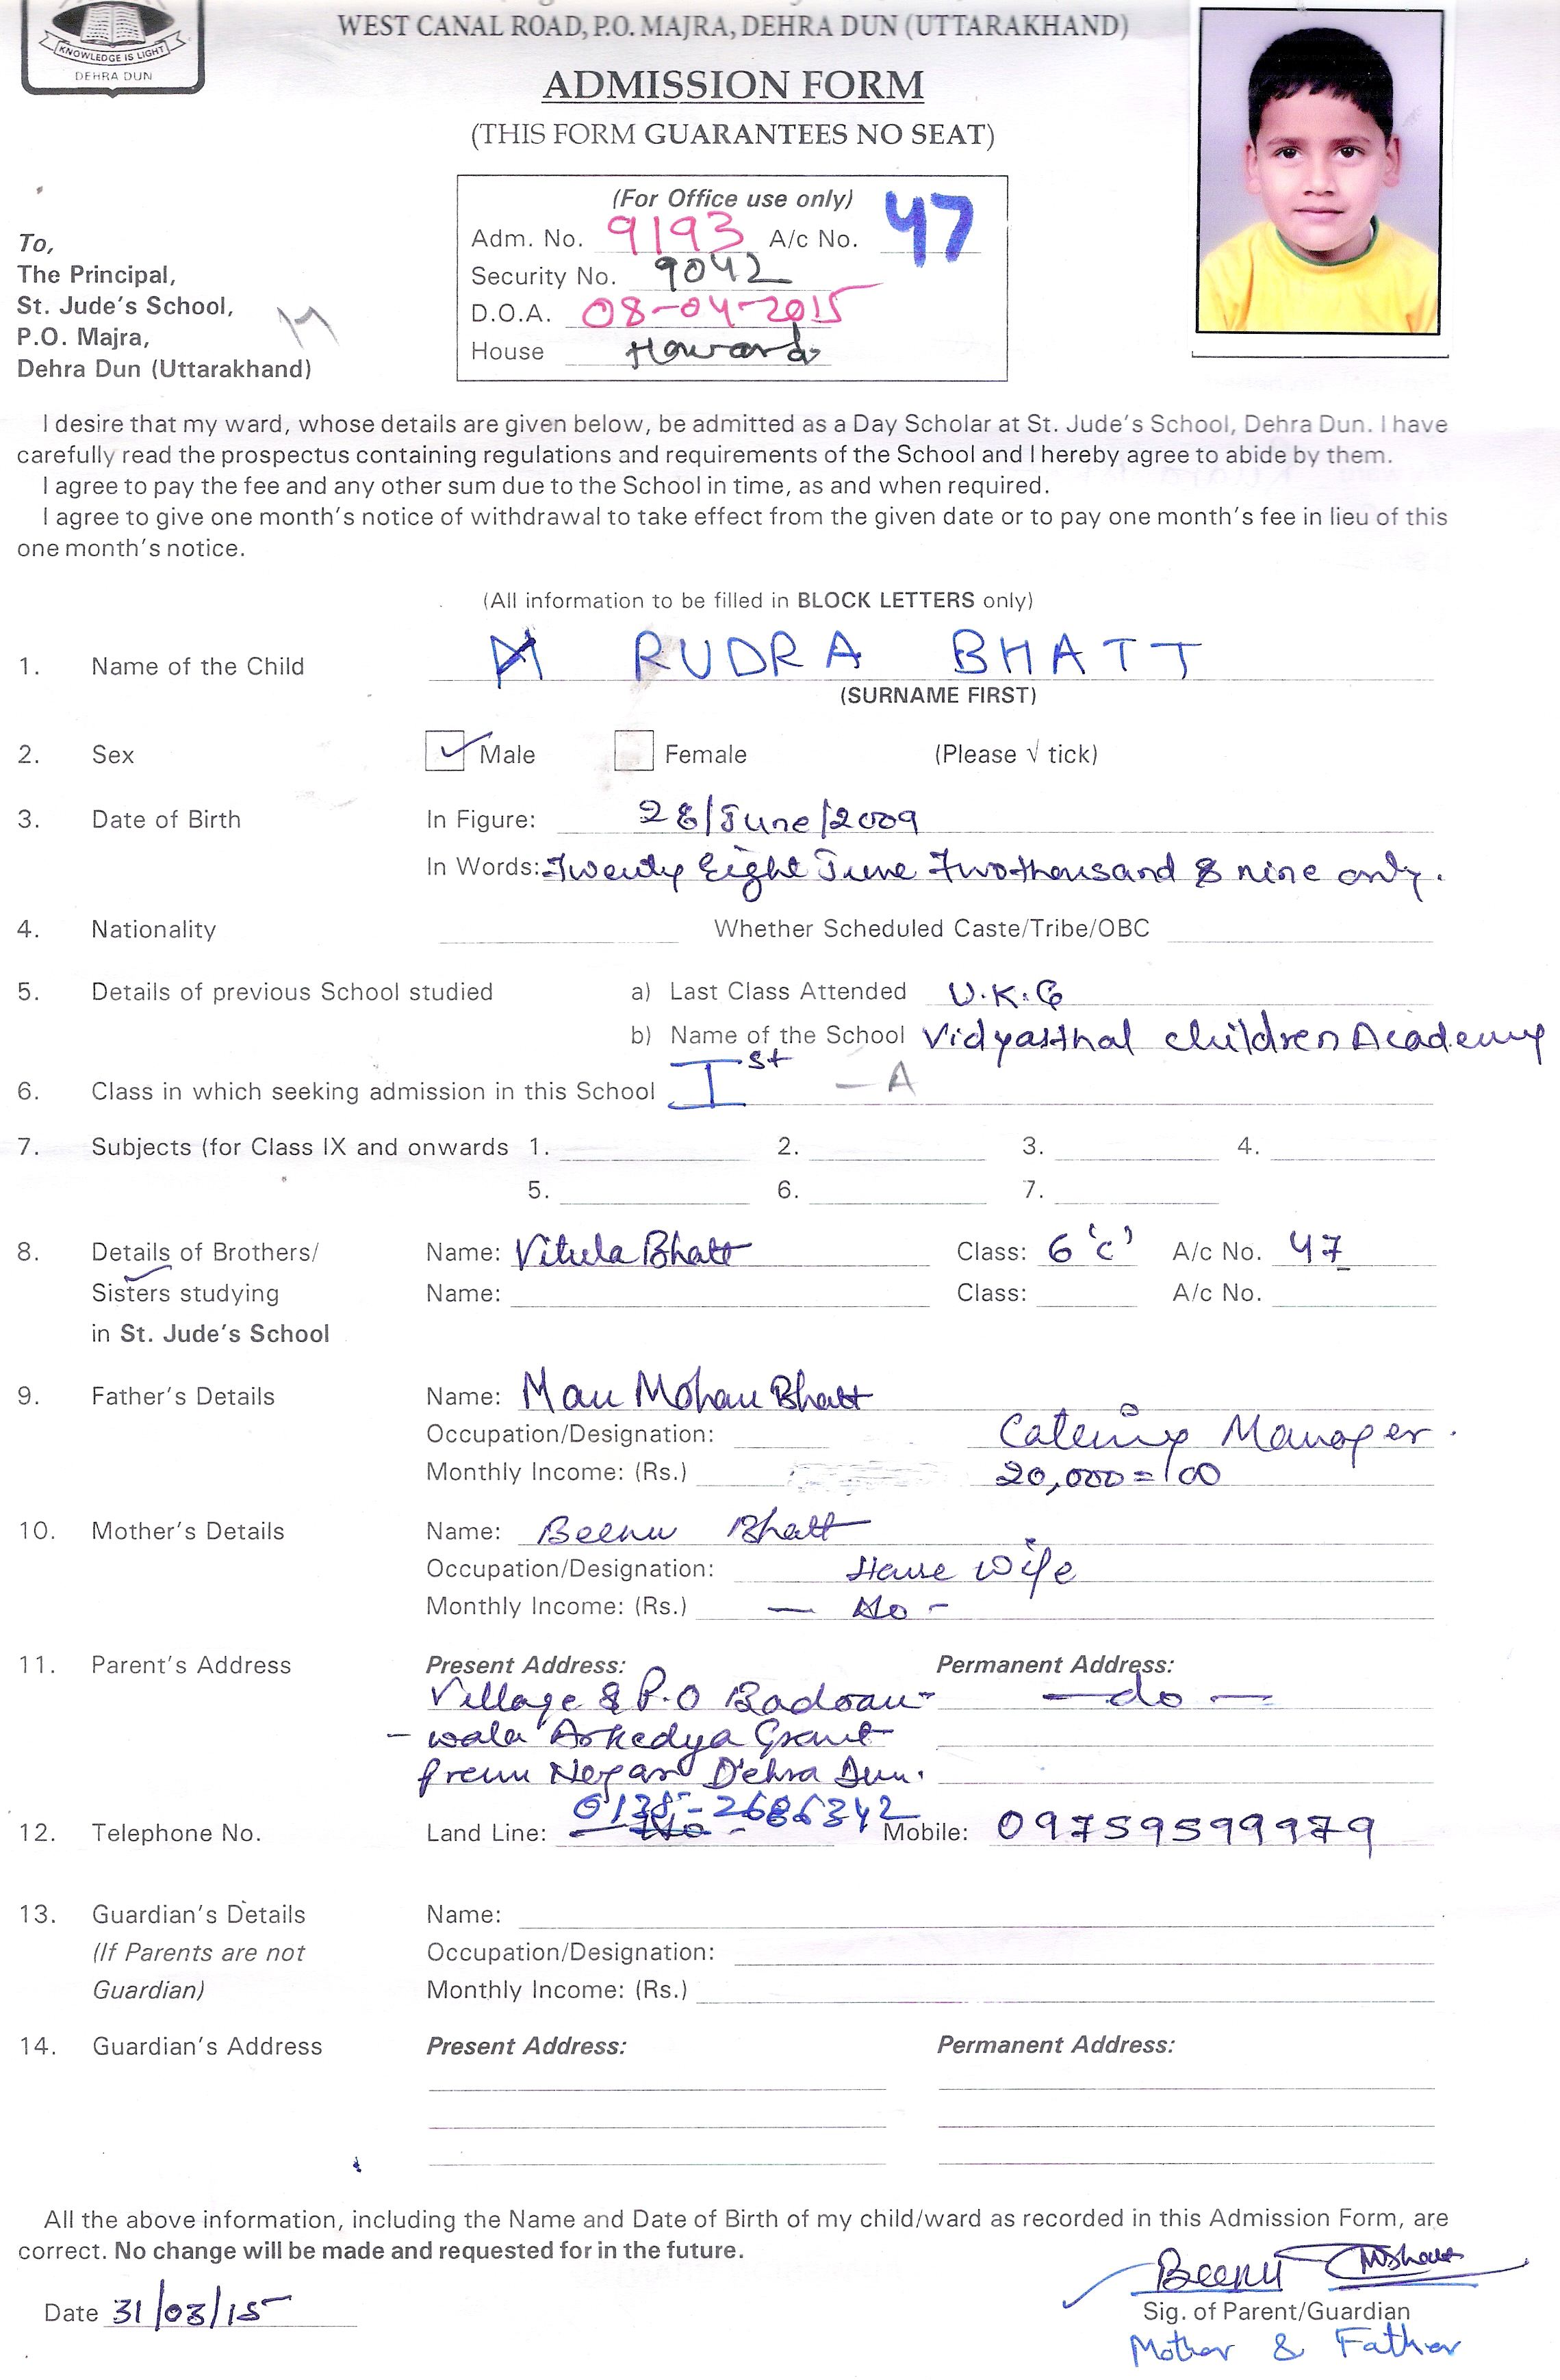 KNOWLEDGE IS LIGHT
DEHRA DUN
WEST CANAL ROAD, P.O. MAJRA, DEHRA DUN (UTTARAKHAND)
ADMISSION FORM
(THIS FORM GUARANTEES NO SEAT)
(For Office use only)
Adm. No. 9193 A/c No. 47
Security No. 9042
D.O.A. 08-04-2015
House Howard
To,
The Principal,
St. Jude's School,
P.O. Majra,
Dehra Dun (Uttarakhand)
I desire that my ward, whose details are given below, be admitted as a Day Scholar at St. Jude's School, Dehra Dun. I have
carefully read the prospectus containing regulations and requirements of the School and I hereby agree to abide by them.
I agree to pay the fee and any other sum due to the School in time, as and when required.
I agree to give one month's notice of withdrawal to take effect from the given date or to pay one month's fee in lieu of this
one month's notice.
(All information to be filled in BLOCK LETTERS only)
1. Name of the Child RUDRA BHATT
(SURNAME FIRST)
2. Sex Male Female (Please √ tick)
3. Date of Birth In Figure: 28/June/2009
In Words: Twenty Eight June Two thousand & nine only.
4. Nationality Whether Scheduled Caste/Tribe/OBC
5. Details of previous School studied a) Last Class Attended U.K.G
b) Name of the School Vidyasthal children Academy
6. Class in which seeking admission in this School Ist - A
7. Subjects (for Class IX and onwards 1. 2. 3. 4.
5. 6. 7.
8. Details of Brothers/ Name: Vitula Bhatt Class: 6 'c' A/c No. 47
Sisters studying Name: Class: A/c No.
in St. Jude's School
9. Father's Details Name: Man Mohan Bhatt
Occupation/Designation: Catering Manager.
Monthly Income: (Rs.) 20,000=/00
10. Mother's Details Name: Beenu Bhatt
Occupation/Designation: House Wife
Monthly Income: (Rs.) — No -
11. Parent's Address Present Address: Permanent Address:
Village & P.O Badoan- — do —
- wala Arkedya Grant
prem Negar Dehra Dun.
12. Telephone No. Land Line: 0135-2686342 Mobile: 09759599979
13. Guardian's Details Name:
(If Parents are not Occupation/Designation:
Guardian) Monthly Income: (Rs.)
14. Guardian's Address Present Address: Permanent Address:
All the above information, including the Name and Date of Birth of my child/ward as recorded in this Admission Form, are
correct. No change will be made and requested for in the future.
Beenu MBhatt
Date 31/03/15 Sig. of Parent/Guardian
Mother & Father